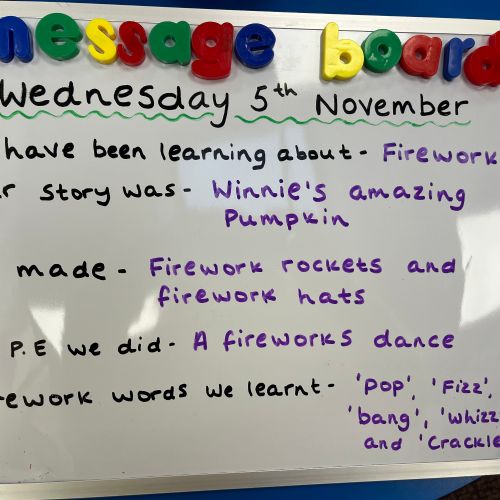 message board
Wednesday 5th November
have been learning about - Firework
story was - Winnie's amazing
Pumpkin
made - Firework rockets and
firework hats
P.E we did - A fireworks dance
ework words we learnt - 'Pop', 'Fizz',
'bang', 'whizz
and 'Crackle